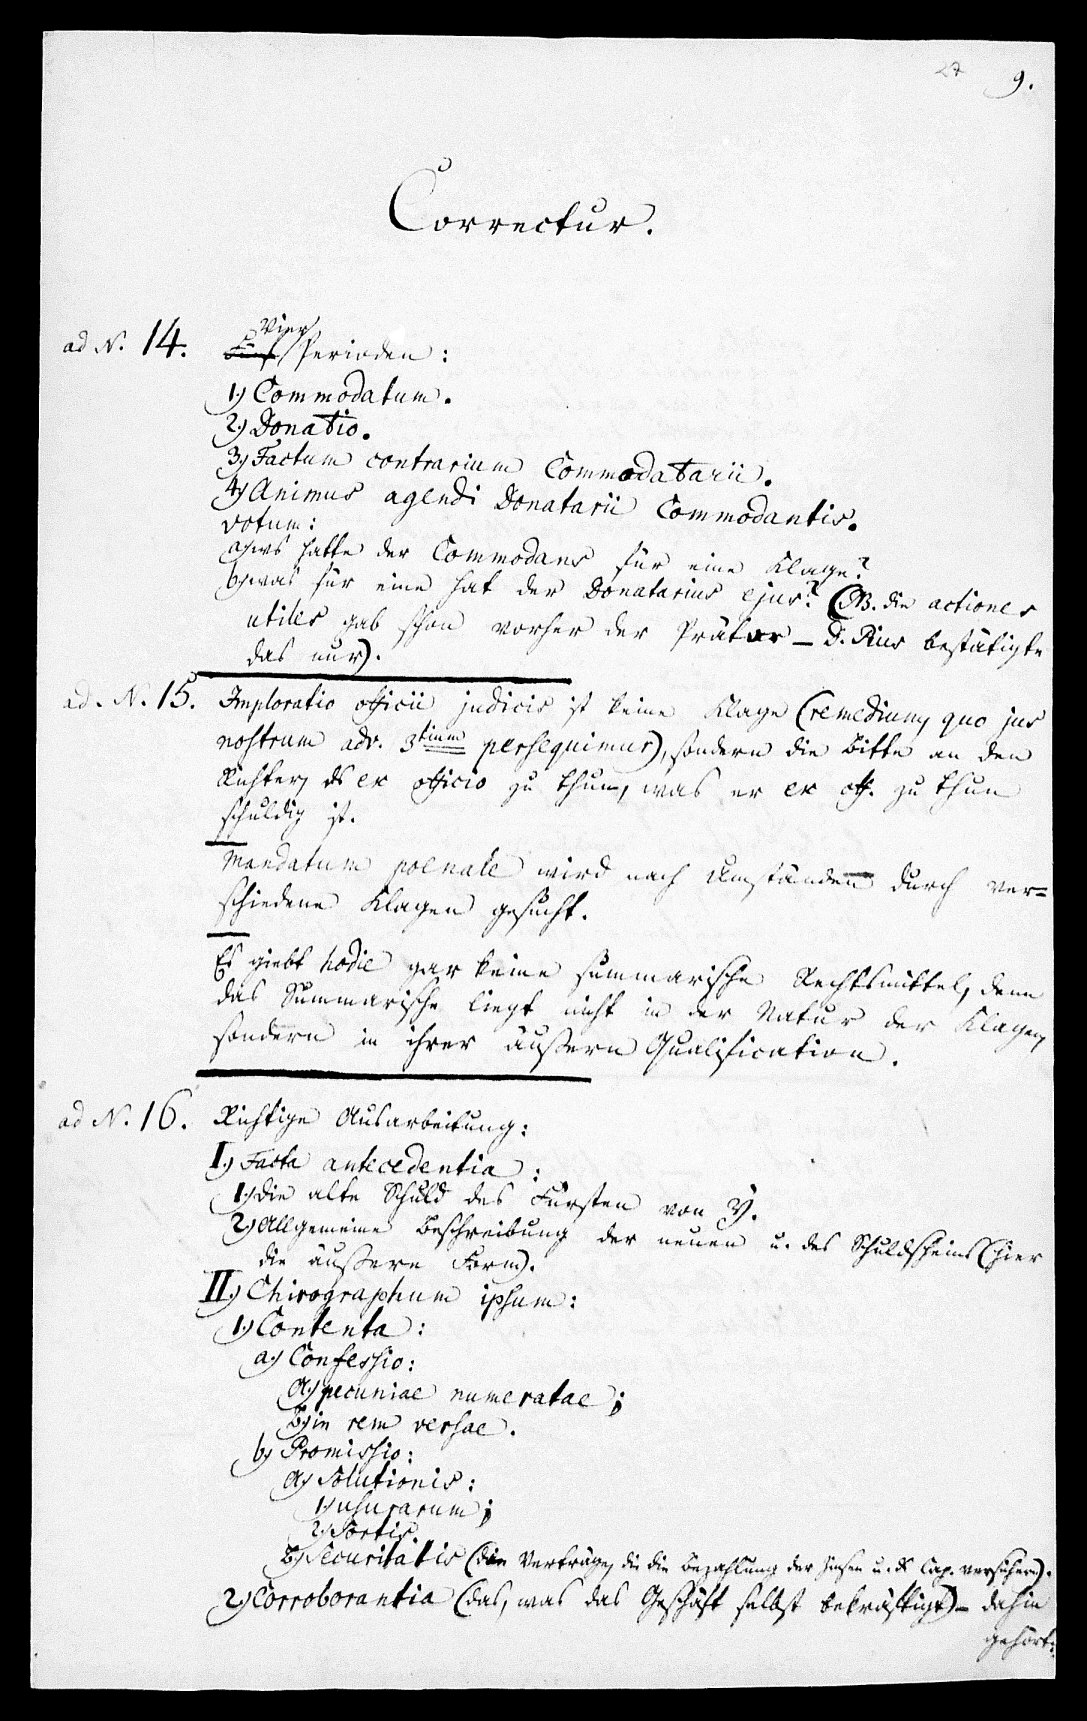 27 9.
Correctur.
Vier
ad N. 14. Fünf Perioden:
1.) Commodatum.
2.) Donatio.
3.) Factum contrarium Commodatarii.
4.) Animus agendi Donatarii Commodantis.
votum:
a) ws hatte der Commodans für eine Klage?
b) was für eine hat der Donatarius ejus? (NB. die actiones
utiles gab schon vorher der Prätor – D. Pius bestätigte
das nur).
ad. N. 15. Imploratio officii judicis ist keine Klage (remedium, quo jus
nostrum adv. 3tium persequimur), sondern die Bitte an den
Richter, ds ex officio zu thun, was er ex off. zu thun
schuldig ist.
Mandatum poenale wird nach Umständen durch ver=
schiedene Klagen gesucht.
Es giebt hodie gar keine summarische Rechtsmittel, denn
das Summarische liegt nicht in der Natur der Klagen,
sondern in ihrer äußern Qualification.
ad N. 16. Richtige Ausarbeitung:
I.) Facta anticedentia:
1.) die alte Schuld des Fürsten von Y.
2.) Allgemeine Beschreibung der neuen u. des Schuldscheins (hier
die äußere Form).
II.) Chirographum ipsum:
1.) Contenta:
a.) Confessio:
A.) pecuniae numeratae;
B.) in rem versae.
b.) Promissio:
A.) Solutionis:
1.) usurarum;
2.) Sortis.
B.) Securitatis (die Verträge, die die Bezahlung der Zinsen u. ds Cap. versichern).
2.) Corroborantia (das, was das Geschäft selbst bekräftigt) – dahin
gehört: